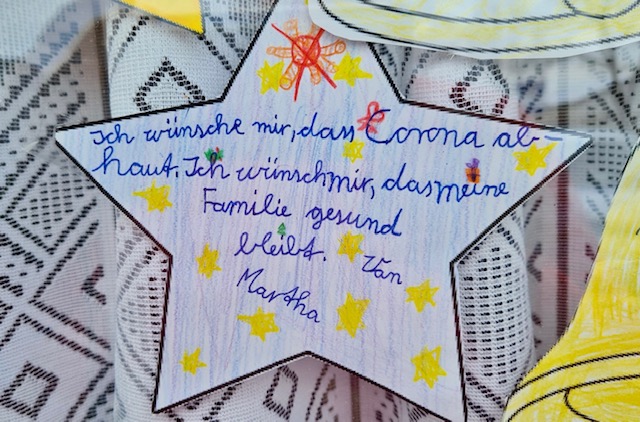 Ich wünsche mir, dass Corona ab-
haut. Ich wünschmir, dasmeine
Familie gesund
bleibt. Van
Martha